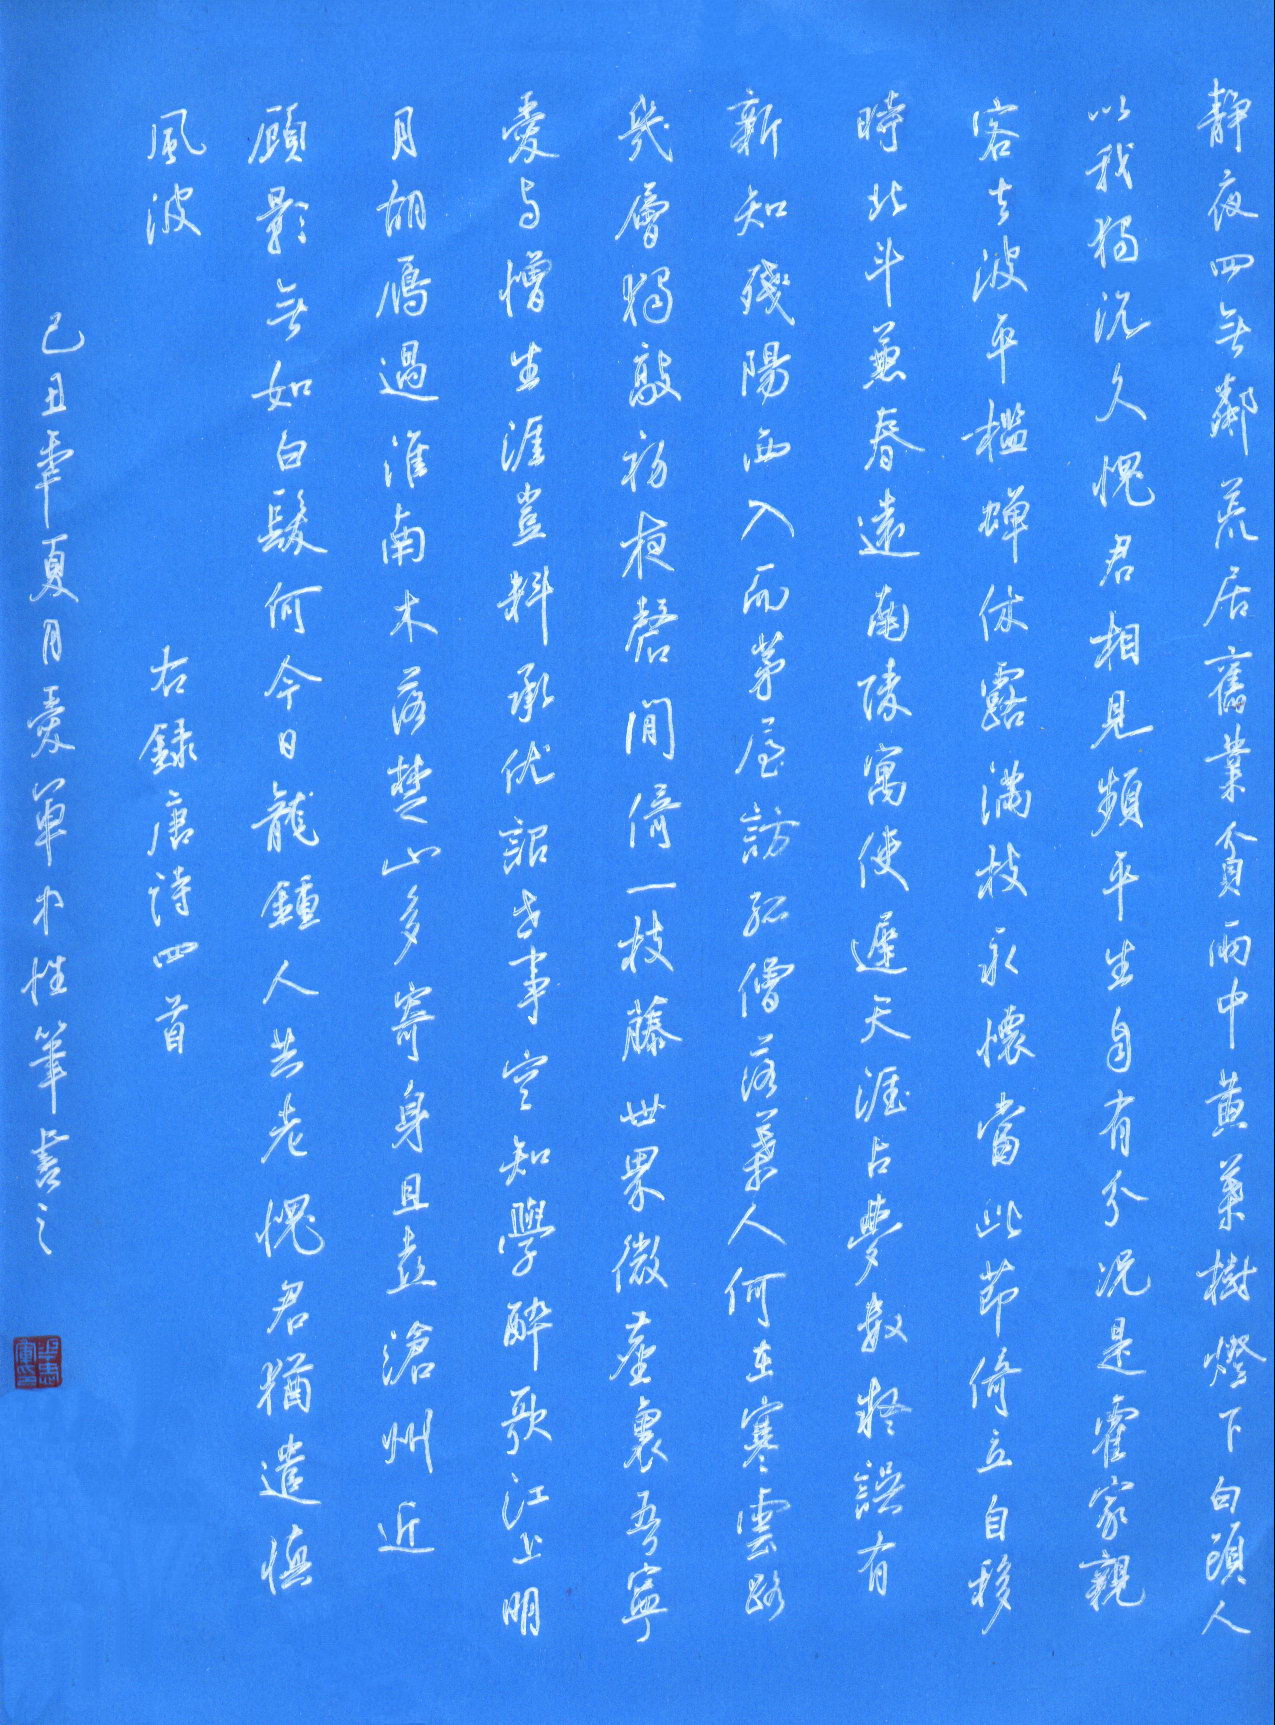 静夜四無鄰荒居舊業貧雨中黄葉樹燈下白頭人
以我獨沉久愧君相見頻平生自有分况是霍家親
客去波平檻蟬休露滿枝永懷當此節倚立自移
時北斗兼春遠南陵寓使遲天涯占夢數疑誤有
新知殘陽西入崦茅屋訪孤僧落葉人何在寒雲路
幾層獨敲初夜磬閒倚一枝藤世界微塵裏吾寧
愛与憎生涯豈料承优詔世事空知學醉歌江上明
月胡雁過淮南木落楚山多寄身且喜滄州近
顧影無如白髮何今日龍鍾人共老愧君猶遣慎
風波
右録唐詩四首
己丑年夏月愛軍中性筆書之